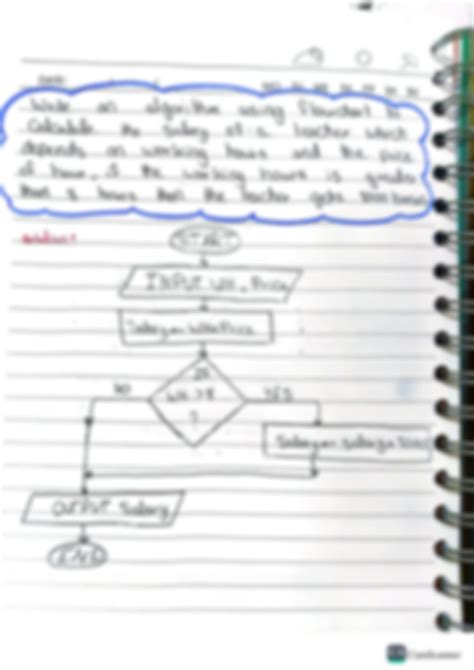 Write an algorithm using flowchart to
Calculate the salary of a teacher which
depends on working hours and the price
of hour. If the working hours is greater
than 8 hours then the teacher gets bonus
solution:
START
INPUT WH, Price
Salary = WH * Price
Is
NO WH > 8 YES
?
Salary = Salary +
OUTPUT Salary
END
CamScanner